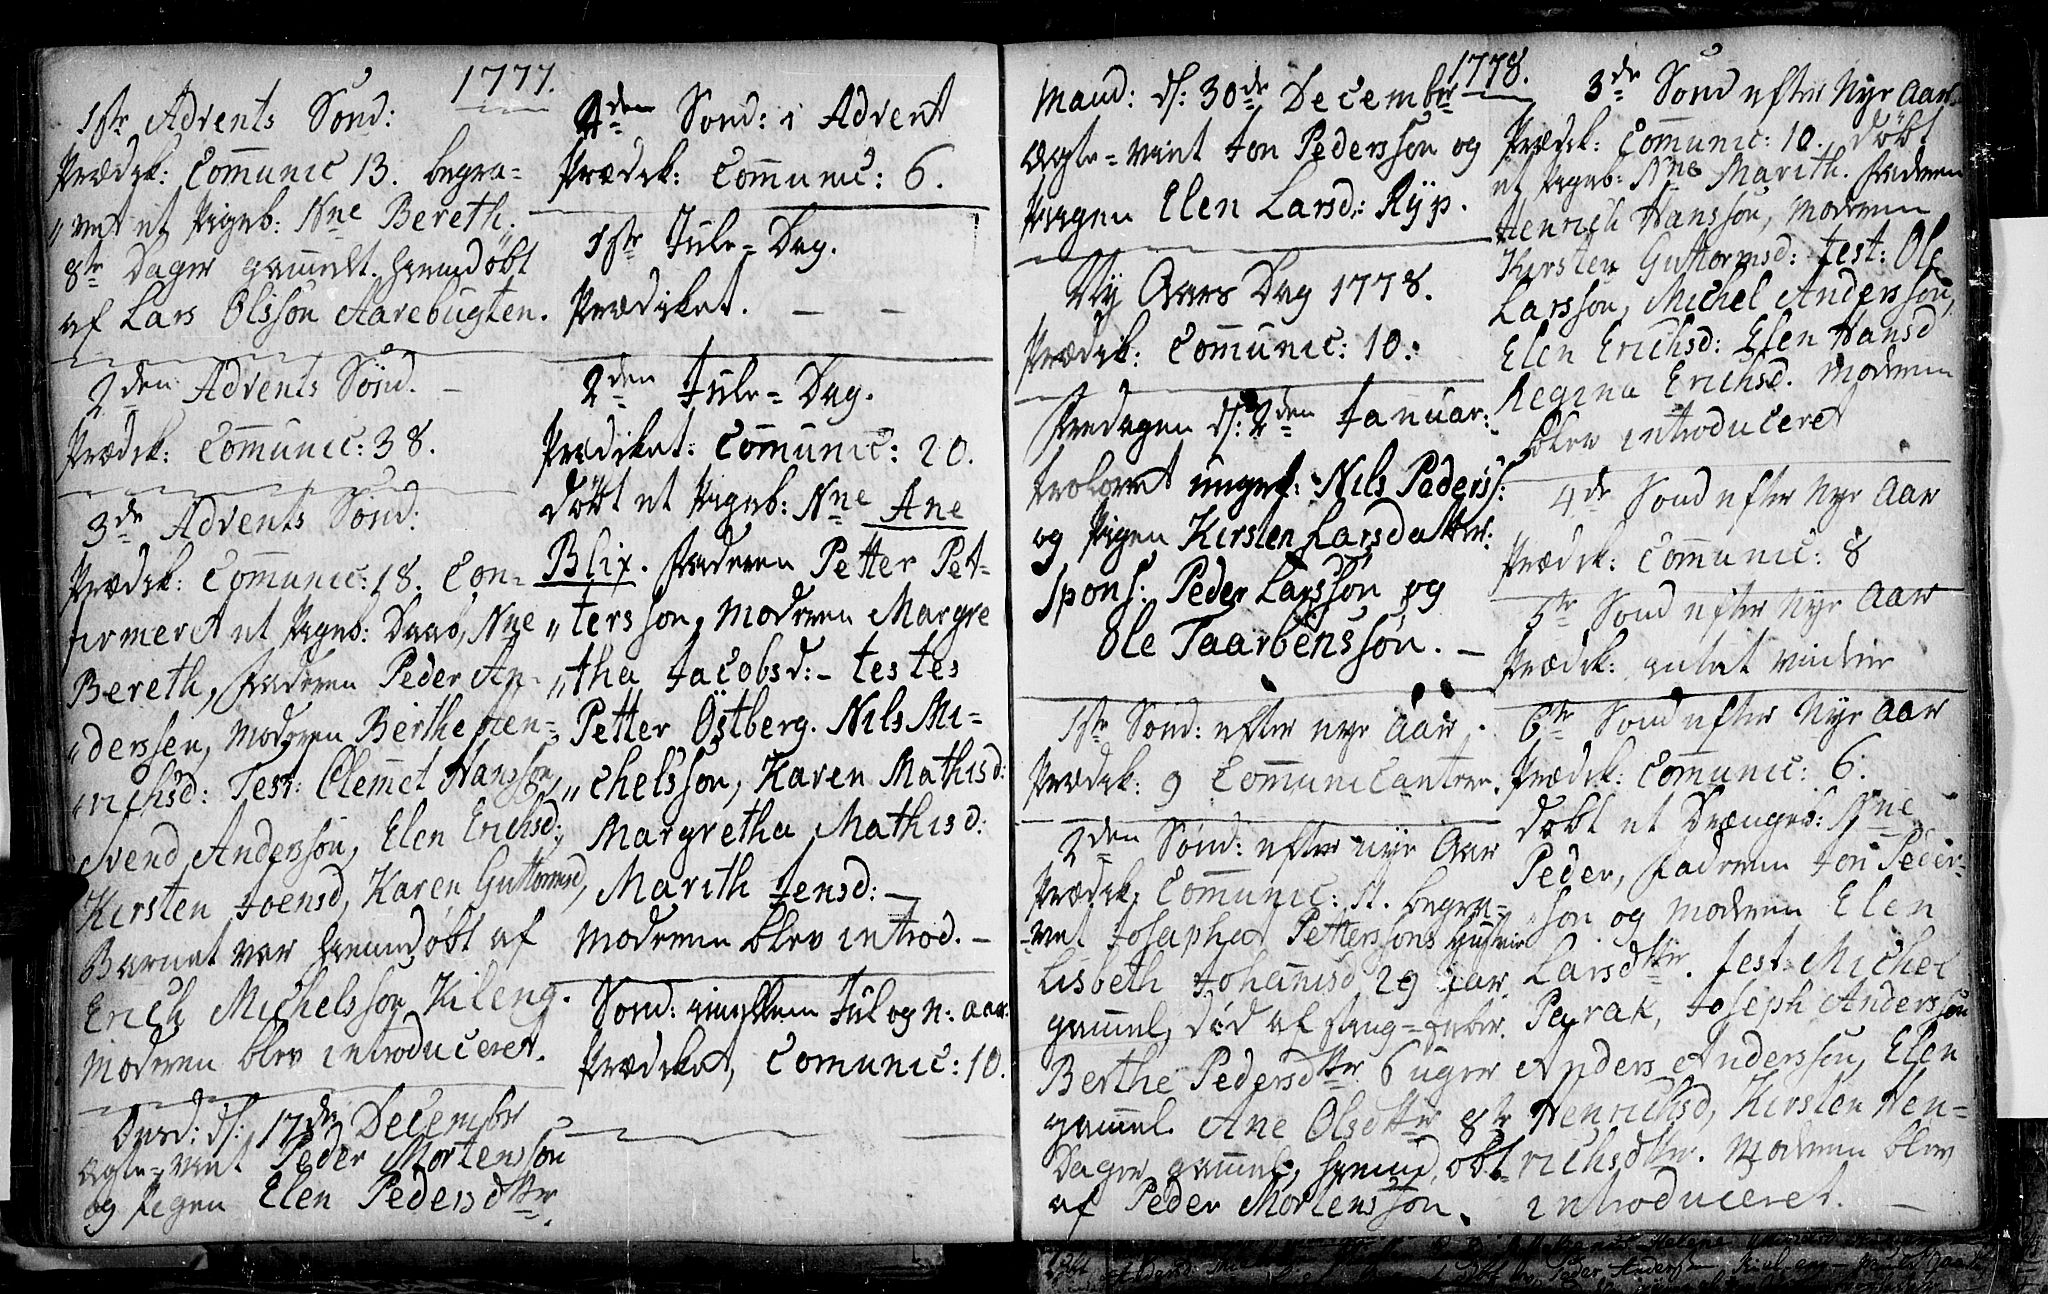 1777.
1ste Advents Sönd:
Prædik: Communic 13. begra=
„vet et Pigeb: Nne Bereth.
8te Dager gammelt. hiemdöbt
af Lars Olsson Aarebugten.
2den Advents Sönd. —
Prædik: Communic: 38.
3de Advents Sönd:
Prædik: Communic: 18. Con-
firmeret et Pigeb: Daab, Nne
Bereth, Faderen Peder An-
„derssen, Moderen Berthe Hen-
„richsd: Test: Clemmet Hansson,
Svend Andersson, Elen Erichsd:,
Kirsten Joensd, Karen Guttormsd,
Barnet var hiemdöbt af
Erich Michelsson Kileng.
Moderen blev introduceret.
Onsd: d: 17de December
Ægte=viet Peder Mortensson
og Pigen Elen Pedersdttr.
4den Sönd: i Advent
Prædik: Communic: 6.
1ste Jule=Dag.
Prædiket. — —
2den Jule=Dag.
Prædiket: Communic: 20.
döbt et Pigeb: Nne Ane
Blix. Faderen Petter Pet-
„tersson, Moderen Margre
„tha Jacobsd: - testes
Petter Östberg. Nils Mi=
„chelsson, Karen Mathisd:
Margretha Mathisd:
Marith Jensd: —
Moderen blev introd. —
Sönd: imellem Jul og N: aar:
Prædiket, Comunic: 10.
1778.
Mand: d: 30de Decembr
Ægte=viet Jon Pedersson og
Pigen Elen Larsd: Ryp.
Ny Aars Dag 1778.
Prædik: Communic: 10.
Fredagen d: 2den Januar:
trolovet ungk: Nils Pederss:
og Pigen Kirsten Larsdatter:
Spons: Peder Larsson og
Ole Taarbensson. —
1ste Sönd: efter nye Aar.
Prædik: 9 Communicantere.
2den Sönd: efter nye Aar
Prædik, Communic: 11. begra-
-vet Josephat Petterssons Hustrue
Lisbeth Johannisd 29 Aar
gammel, död af Feber.
Berthe Pedersdttr 6 uger
gammel. Ane Olsdttr 8te
Dager gammel, hiemdöbt
af Peder Mortensson.
3de Sönd efter Nye Aar.
Prædik: Communic: 10. döbt
et Pigeb: Nne Marith. Faderen
Henrich Hansson, Moderen
Kirsten Guttormsd: test: Ole
Larsson, Michel Andersson,
Elen Erichsd: Elen Hansd
Regina Erichsd. Moderen
blev introduceret
4de Sönd efter Nye Aar
Prædik: Communic: 8
5te Sönd efter Nye Aar
Prædik: intet videre
6te Sönd efter Nye Aar
Prædik: Communic: 6.
döbt et Drengeb: Nne
Peder, Faderen Jon Peder-
„son og Moderen Elen
Larsdttr. Test: Michel
Parak, Joseph Andersson
Anders Andersson, Elen
Henrichsd, Kirsten Hen=
richsdttr. Moderen blev
introduceret. —